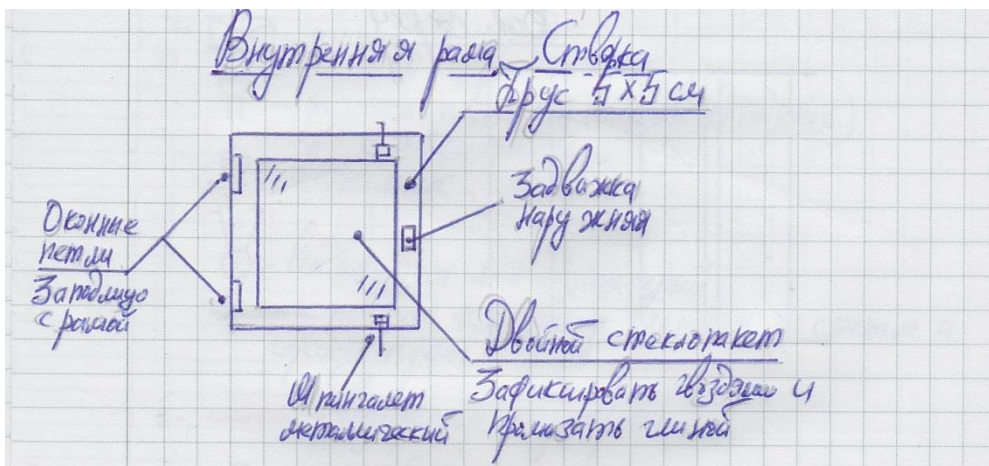 Внутренняя рама, Створка
Брус 5х5 см
Задвижка
наружняя
Оконные
петли
Заподлицо
с рамой
Двойной стеклопакет
Зафиксировать гвоздями и
промазать глиной
Шпингалет
металлический